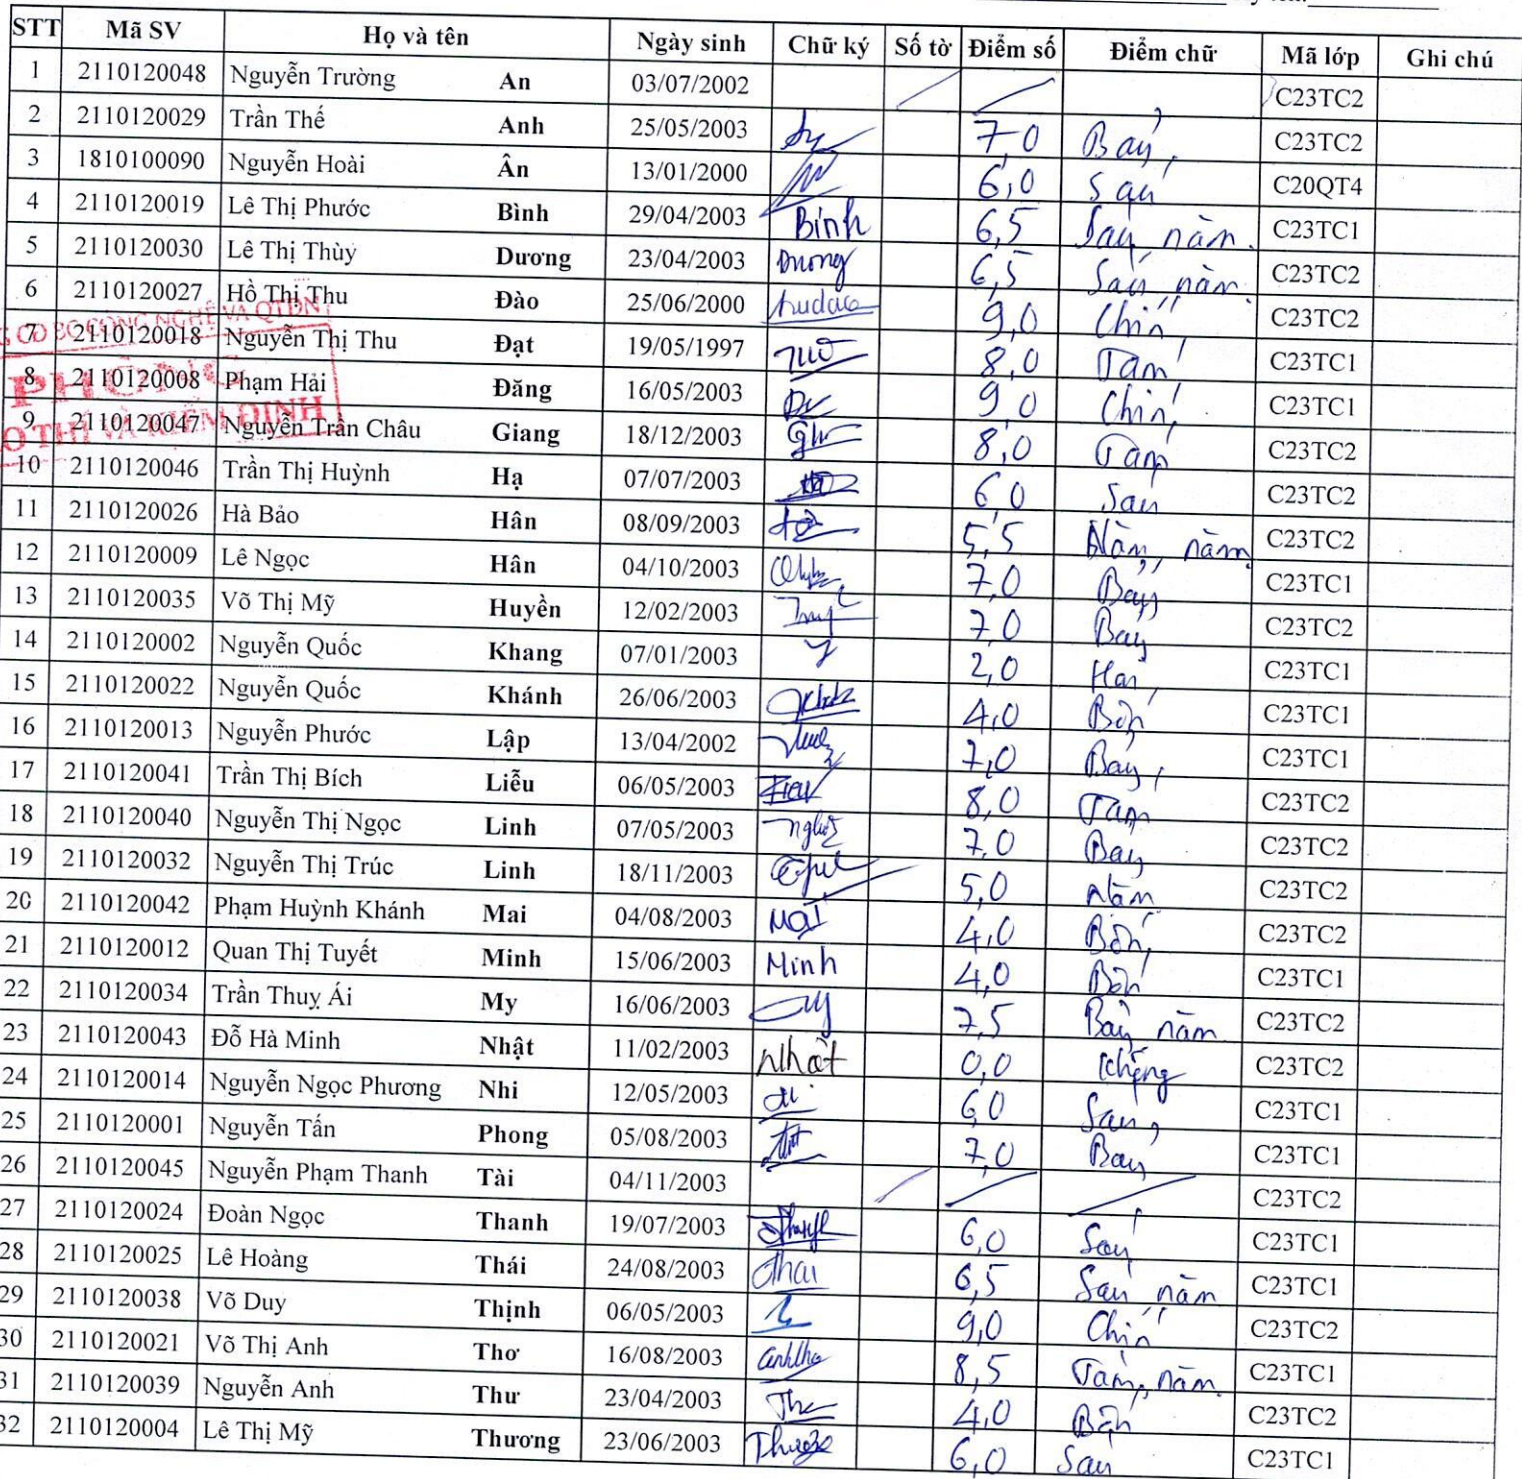 STT Mã SV Họ và tên Ngày sinh Chữ ký Số tờ Điểm số Điểm chữ Mã lớp Ghi chú
1 2110120048 Nguyễn Trường An 03/07/2002 C23TC2
2 2110120029 Trần Thế Anh 25/05/2003 7,0 Bảy C23TC2
3 1810100090 Nguyễn Hoài Ân 13/01/2000 6,0 Sáu C20QT4
4 2110120019 Lê Thị Phước Bình 29/04/2003 Bình 6,5 Sáu, năm C23TC1
5 2110120030 Lê Thị Thùy Dương 23/04/2003 Dương 6,5 Sáu năm C23TC2
6 2110120027 Hồ Thị Thu Đào 25/06/2000 thudao 9,0 Chín C23TC2
7 2110120018 Nguyễn Thị Thu Đạt 19/05/1997 8,0 Tám C23TC1
8 2110120008 Phạm Hải Đăng 16/05/2003 9,0 Chín C23TC1
9 2110120047 Nguyễn Trần Châu Giang 18/12/2003 8,0 Tám C23TC2
10 2110120046 Trần Thị Huỳnh Hạ 07/07/2003 6,0 Sáu C23TC2
11 2110120026 Hà Bảo Hân 08/09/2003 5,5 Năm, năm C23TC2
12 2110120009 Lê Ngọc Hân 04/10/2003 7,0 Bảy C23TC1
13 2110120035 Võ Thị Mỹ Huyền 12/02/2003 7,0 Bảy C23TC2
14 2110120002 Nguyễn Quốc Khang 07/01/2003 2,0 Hai C23TC1
15 2110120022 Nguyễn Quốc Khánh 26/06/2003 4,0 Bốn C23TC1
16 2110120013 Nguyễn Phước Lập 13/04/2002 7,0 Bảy C23TC1
17 2110120041 Trần Thị Bích Liễu 06/05/2003 8,0 Tám C23TC2
18 2110120040 Nguyễn Thị Ngọc Linh 07/05/2003 7,0 Bảy C23TC2
19 2110120032 Nguyễn Thị Trúc Linh 18/11/2003 5,0 Năm C23TC2
20 2110120042 Phạm Huỳnh Khánh Mai 04/08/2003 Mai 4,0 Bốn C23TC2
21 2110120012 Quan Thị Tuyết Minh 15/06/2003 Minh 4,0 Bốn C23TC1
22 2110120034 Trần Thuỵ Ái My 16/06/2003 7,5 Bảy năm C23TC2
23 2110120043 Đỗ Hà Minh Nhật 11/02/2003 Nhật 0,0 Không C23TC2
24 2110120014 Nguyễn Ngọc Phương Nhi 12/05/2003 6,0 Sáu C23TC1
25 2110120001 Nguyễn Tấn Phong 05/08/2003 7,0 Bảy C23TC1
26 2110120045 Nguyễn Phạm Thanh Tài 04/11/2003 C23TC2
27 2110120024 Đoàn Ngọc Thanh 19/07/2003 6,0 Sáu C23TC1
28 2110120025 Lê Hoàng Thái 24/08/2003 Thai 6,5 Sáu năm C23TC1
29 2110120038 Võ Duy Thịnh 06/05/2003 9,0 Chín C23TC2
30 2110120021 Võ Thị Anh Thơ 16/08/2003 anhtho 8,5 Tám, năm C23TC1
31 2110120039 Nguyễn Anh Thư 23/04/2003 4,0 Bốn C23TC2
32 2110120004 Lê Thị Mỹ Thương 23/06/2003 6,0 Sáu C23TC1
CÔNG NGHỆ VÀ QTDN
PHÒNG
THÍ VÀ KIỂM ĐỊNH